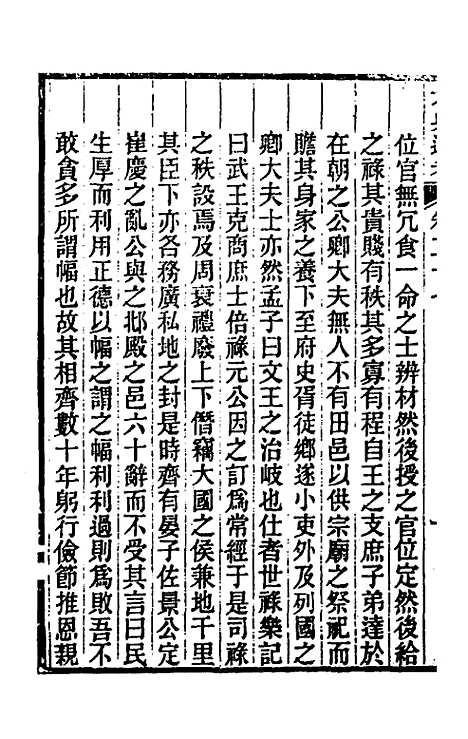 位官無冗食一命之士辨材然後授之官位定然後給
之祿其貴賤有秩其多寡有程自王之支庶子弟達於
在朝之公卿大夫無人不有田邑以供宗廟之祭祀而
贍其身家之養下至府史胥徒鄉遂小吏外及列國之
卿大夫士亦然孟子曰文王之治岐也仕者世祿樂記
曰武王克商庶士倍祿元公因之訂爲常經于是司祿
之秩設焉及周衰禮廢上下僭竊大國之侯兼地千里
其臣下亦各務廣私地之封是時齊有晏子佐景公定
崔慶之亂公與之邶殿之邑六十辭而不受其言曰民
生厚而利用正德以幅之謂之幅利利過則爲敗吾不
敢貪多所謂幅也故其相齊數十年躬行儉節推恩親